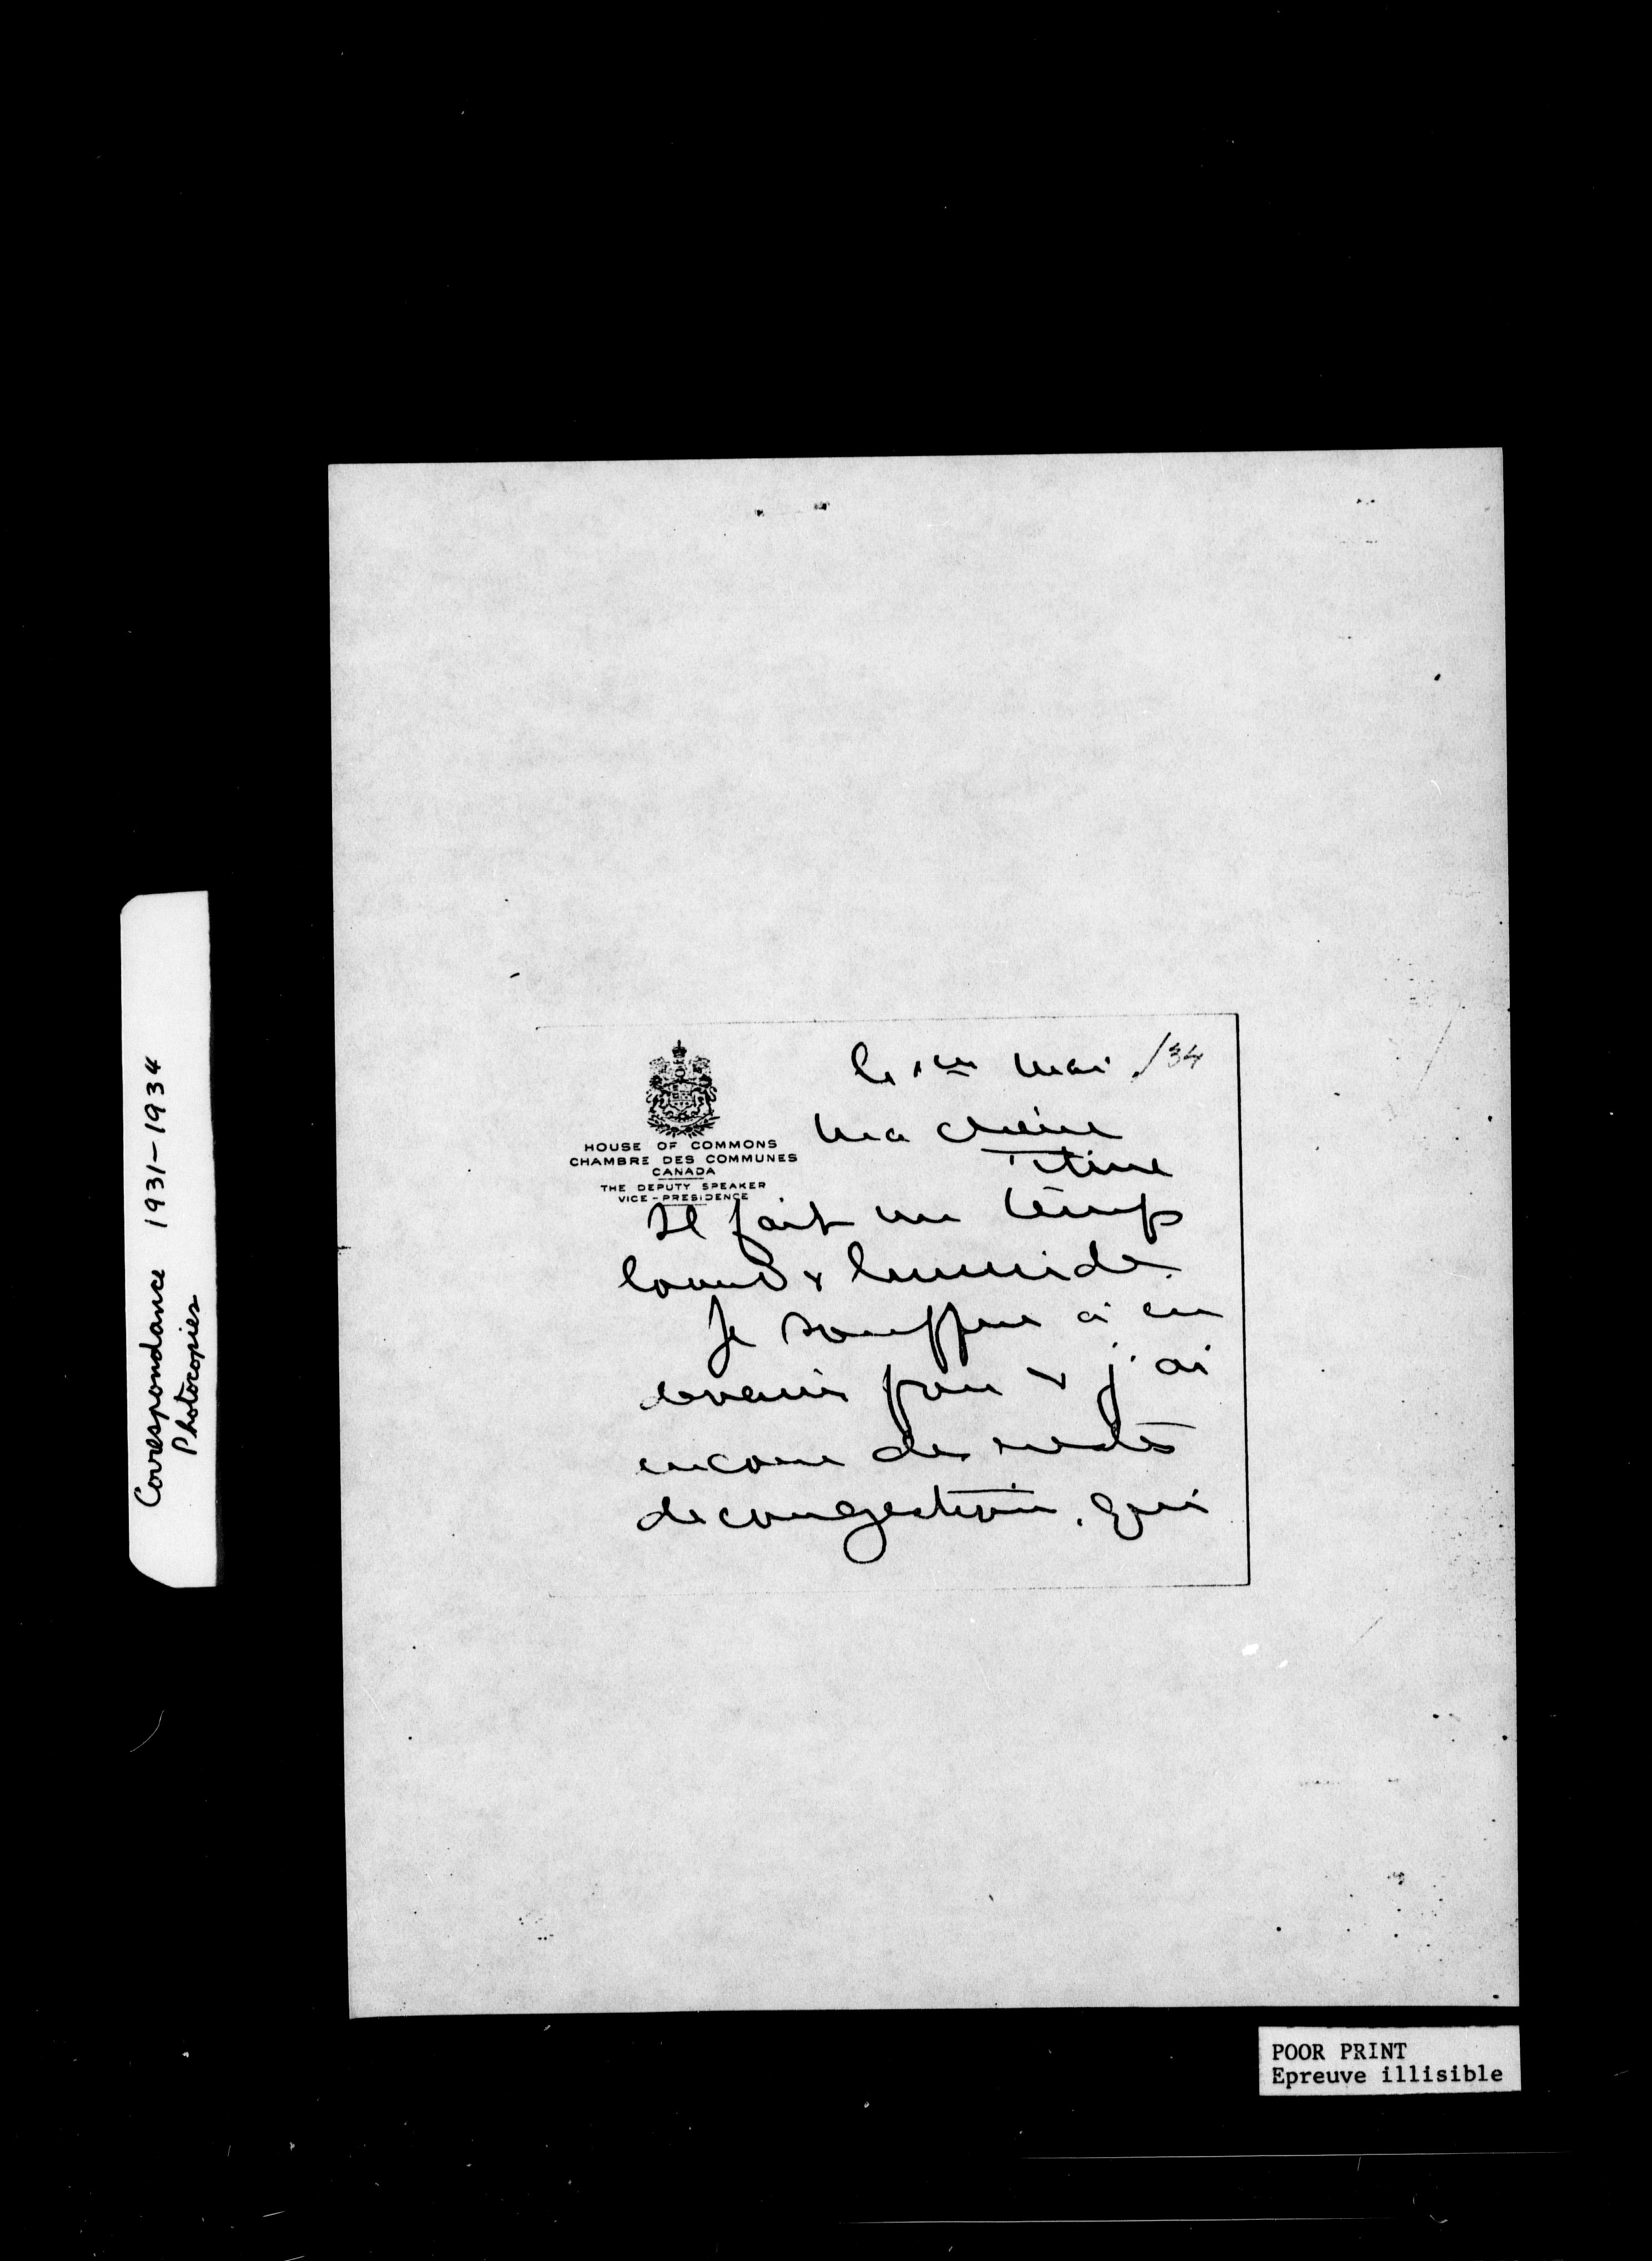 Correspondance 1931-1934
Photocopies
HOUSE OF COMMONS
CHAMBRE DES COMMUNES
CANADA
THE DEPUTY SPEAKER
VICE-PRESIDENCE
le 1er mai /34
Ma chère
Titine
Il fait un temps
lourd & humide.
Je souffre à en
devenir fou & j'ai
encore des restes
de congestion, qui
POOR PRINT
Epreuve illisible